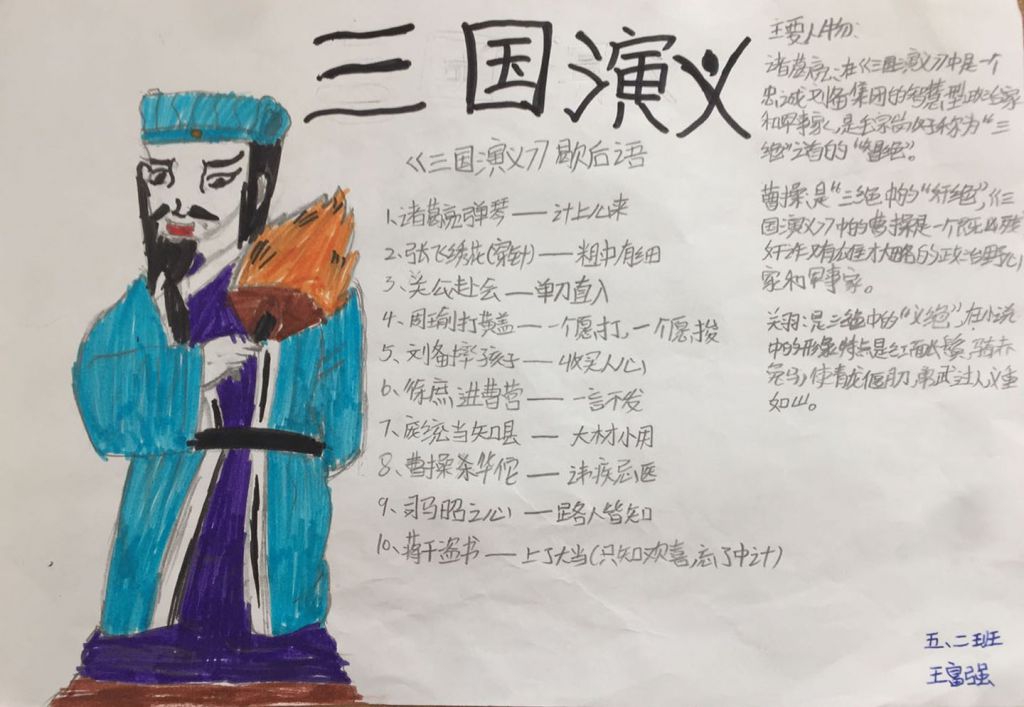 三国演义
《三国演义》歇后语
1、诸葛亮弹琴——计上心来
2、张飞绣花(穿针)——粗中有细
3、关公赴会——单刀直入
4、周瑜打黄盖——一个愿打,一个愿挨
5、刘备摔孩子——收买人心
6、徐庶进曹营——一言不发
7、庞统当知县——大材小用
8、曹操杀华佗——讳疾忌医
9、司马昭之心——路人皆知
10、蒋干盗书——上了大当(只知欢喜,忘了中计)
主要人物:
诸葛亮:在《三国演义》中是一个
忠诚刘备集团的智慧型政治家
和军事家,是毛宗岗父子称为“三
绝”之首的“智绝”。
曹操:是“三绝中的“奸绝”,《三
国演义》中的曹操是一个
奸诈又有雄才大略的政治野心
家和军事家。
关羽:是三绝中的“义绝”,在小说
中的形象特点是红面长髯,骑赤
兔马,使青龙偃月刀,勇武过人义重
如山。
五、二班
王富强